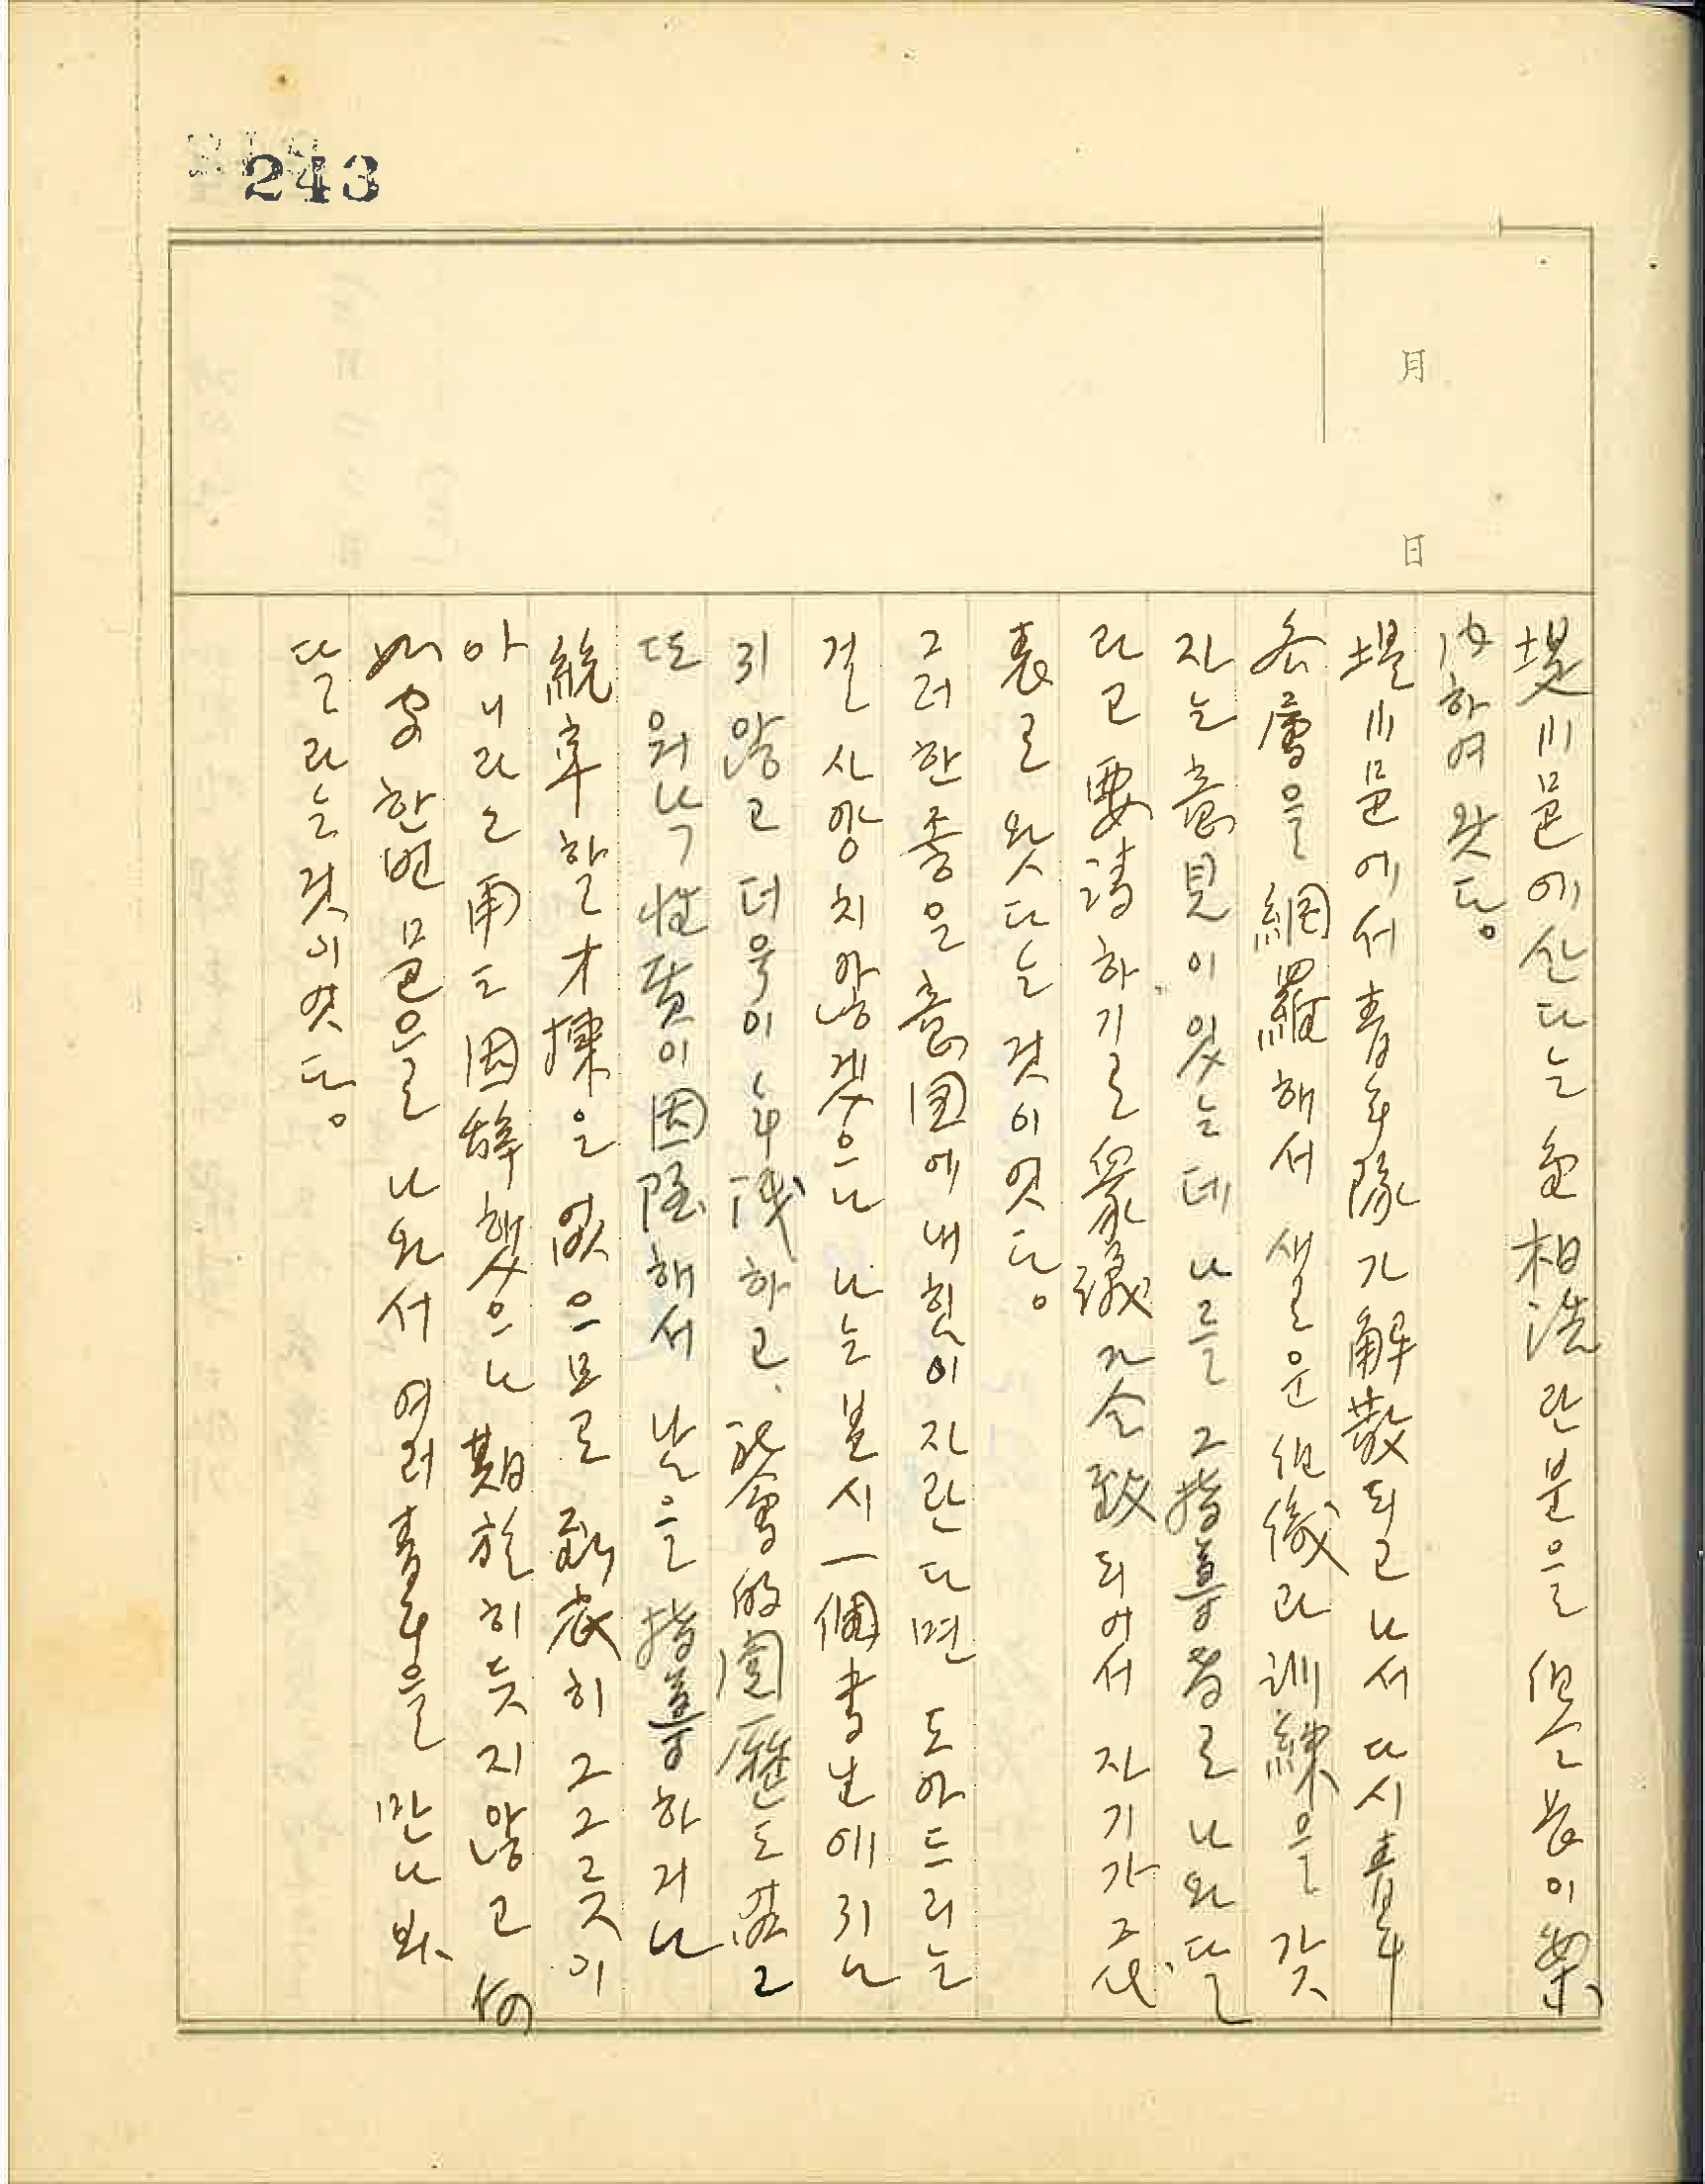 243
月 日
堤川邑에산다는 金相浩란분을 但馬長이案
內하여 왓다。
堤川邑에서 靑年隊가解散되고나서다시靑年
各層을 網羅해서 새로운組織과訓練을 갖
자는 意見이잇는데 나를 그指導者로 나와달
라고 要請하기로 衆議가合致되어서 자기가 그代
表로 왓다는 것이엿다。
그러한좋은意圖에내힘이자란다면 도아드리는
걸사양치않겟으나 나는본시一個書生에지나
지않고 더욱이年淺하고、社會的閱歷도얕고
또워낙 性質이固陋해서 남을 指導하거나
統率할才操은 없으므로 到底히 그그릇이
아니라고 再三固辭했으나 期於히듯지않고 何
如間 한번 邑으로 나와서 여러靑年을 만나봐
달라는것이엿다。